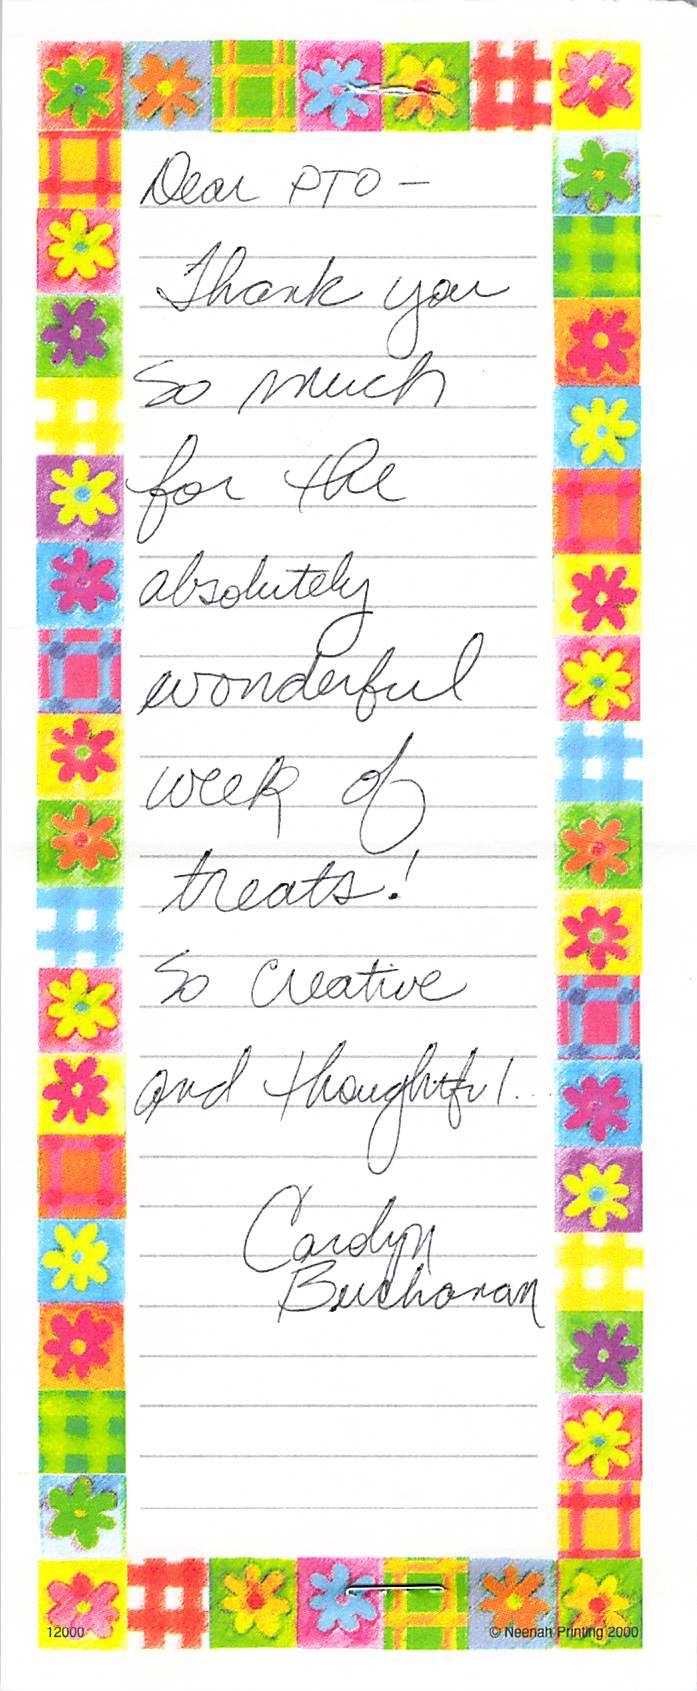 Dear PTO -
Thank you
So much
for the
absolutely
wonderful
week of
treats!
So creative
and thoughtful..
Carolyn
Buchanan
12000
© Neenah Printing 2000